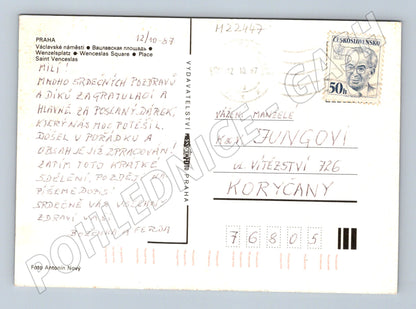 PRAHA
Václavské náměstí ● Вацлавская площадь ●
Wenzelsplatz ● Wenceslas Square ● Place
Saint Venceslas
12/10-87
M22447
MILÍ!
MNOHO SRDEČNÝCH POZDRAVŮ
A DÍKŮ ZA GRATULACI A
HLAVNĚ ZA POSLANÝ DÁREK,
KTERÝ NÁS MOC POTĚŠIL.
DOŠEL V POŘÁDKU A
OBSAH JE JIŽ ZPRACOVÁN!
ZATÍM TOTO KRÁTKÉ
SDĚLENÍ, POZDĚJI
PÍŠEME
SRDEČNĚ VÁS
ZDRAVÍ
A
Foto Antonín Nový
VYDAVATELSTVÍ
PRAHA
ČESKOSLOVENSKO
50h
VÁŽENÍ MANŽELÉ
JUNGOVI
UL. VÍTĚZSTVÍ 726
KORYČANY
76805
POHLEDNICE-